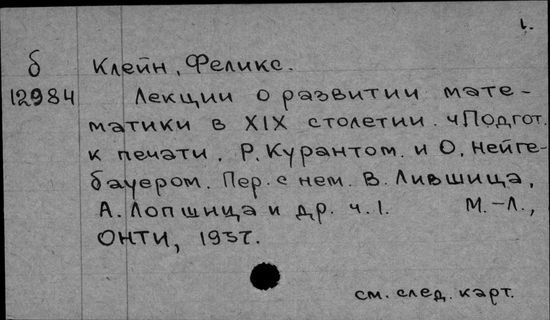 1.
б Клейн, Феликс.
12984 Лекции о развитии мате-
матики в XIX столетии. Подгот.
к печати. Р. Курантом. и О. Нейге-
бауером. Пер. с нем. В. Лившица,
А. Лопшица и др. ч. 1. М.-Л.,
ОНТИ, 1937.
см. след. карт.